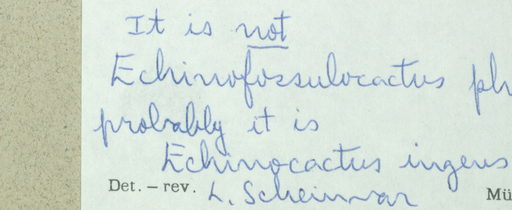 It is not
Echinofossulocactus ph
probably it is
Echinocactus ingens
Det. – rev. L. Scheinvar Mü